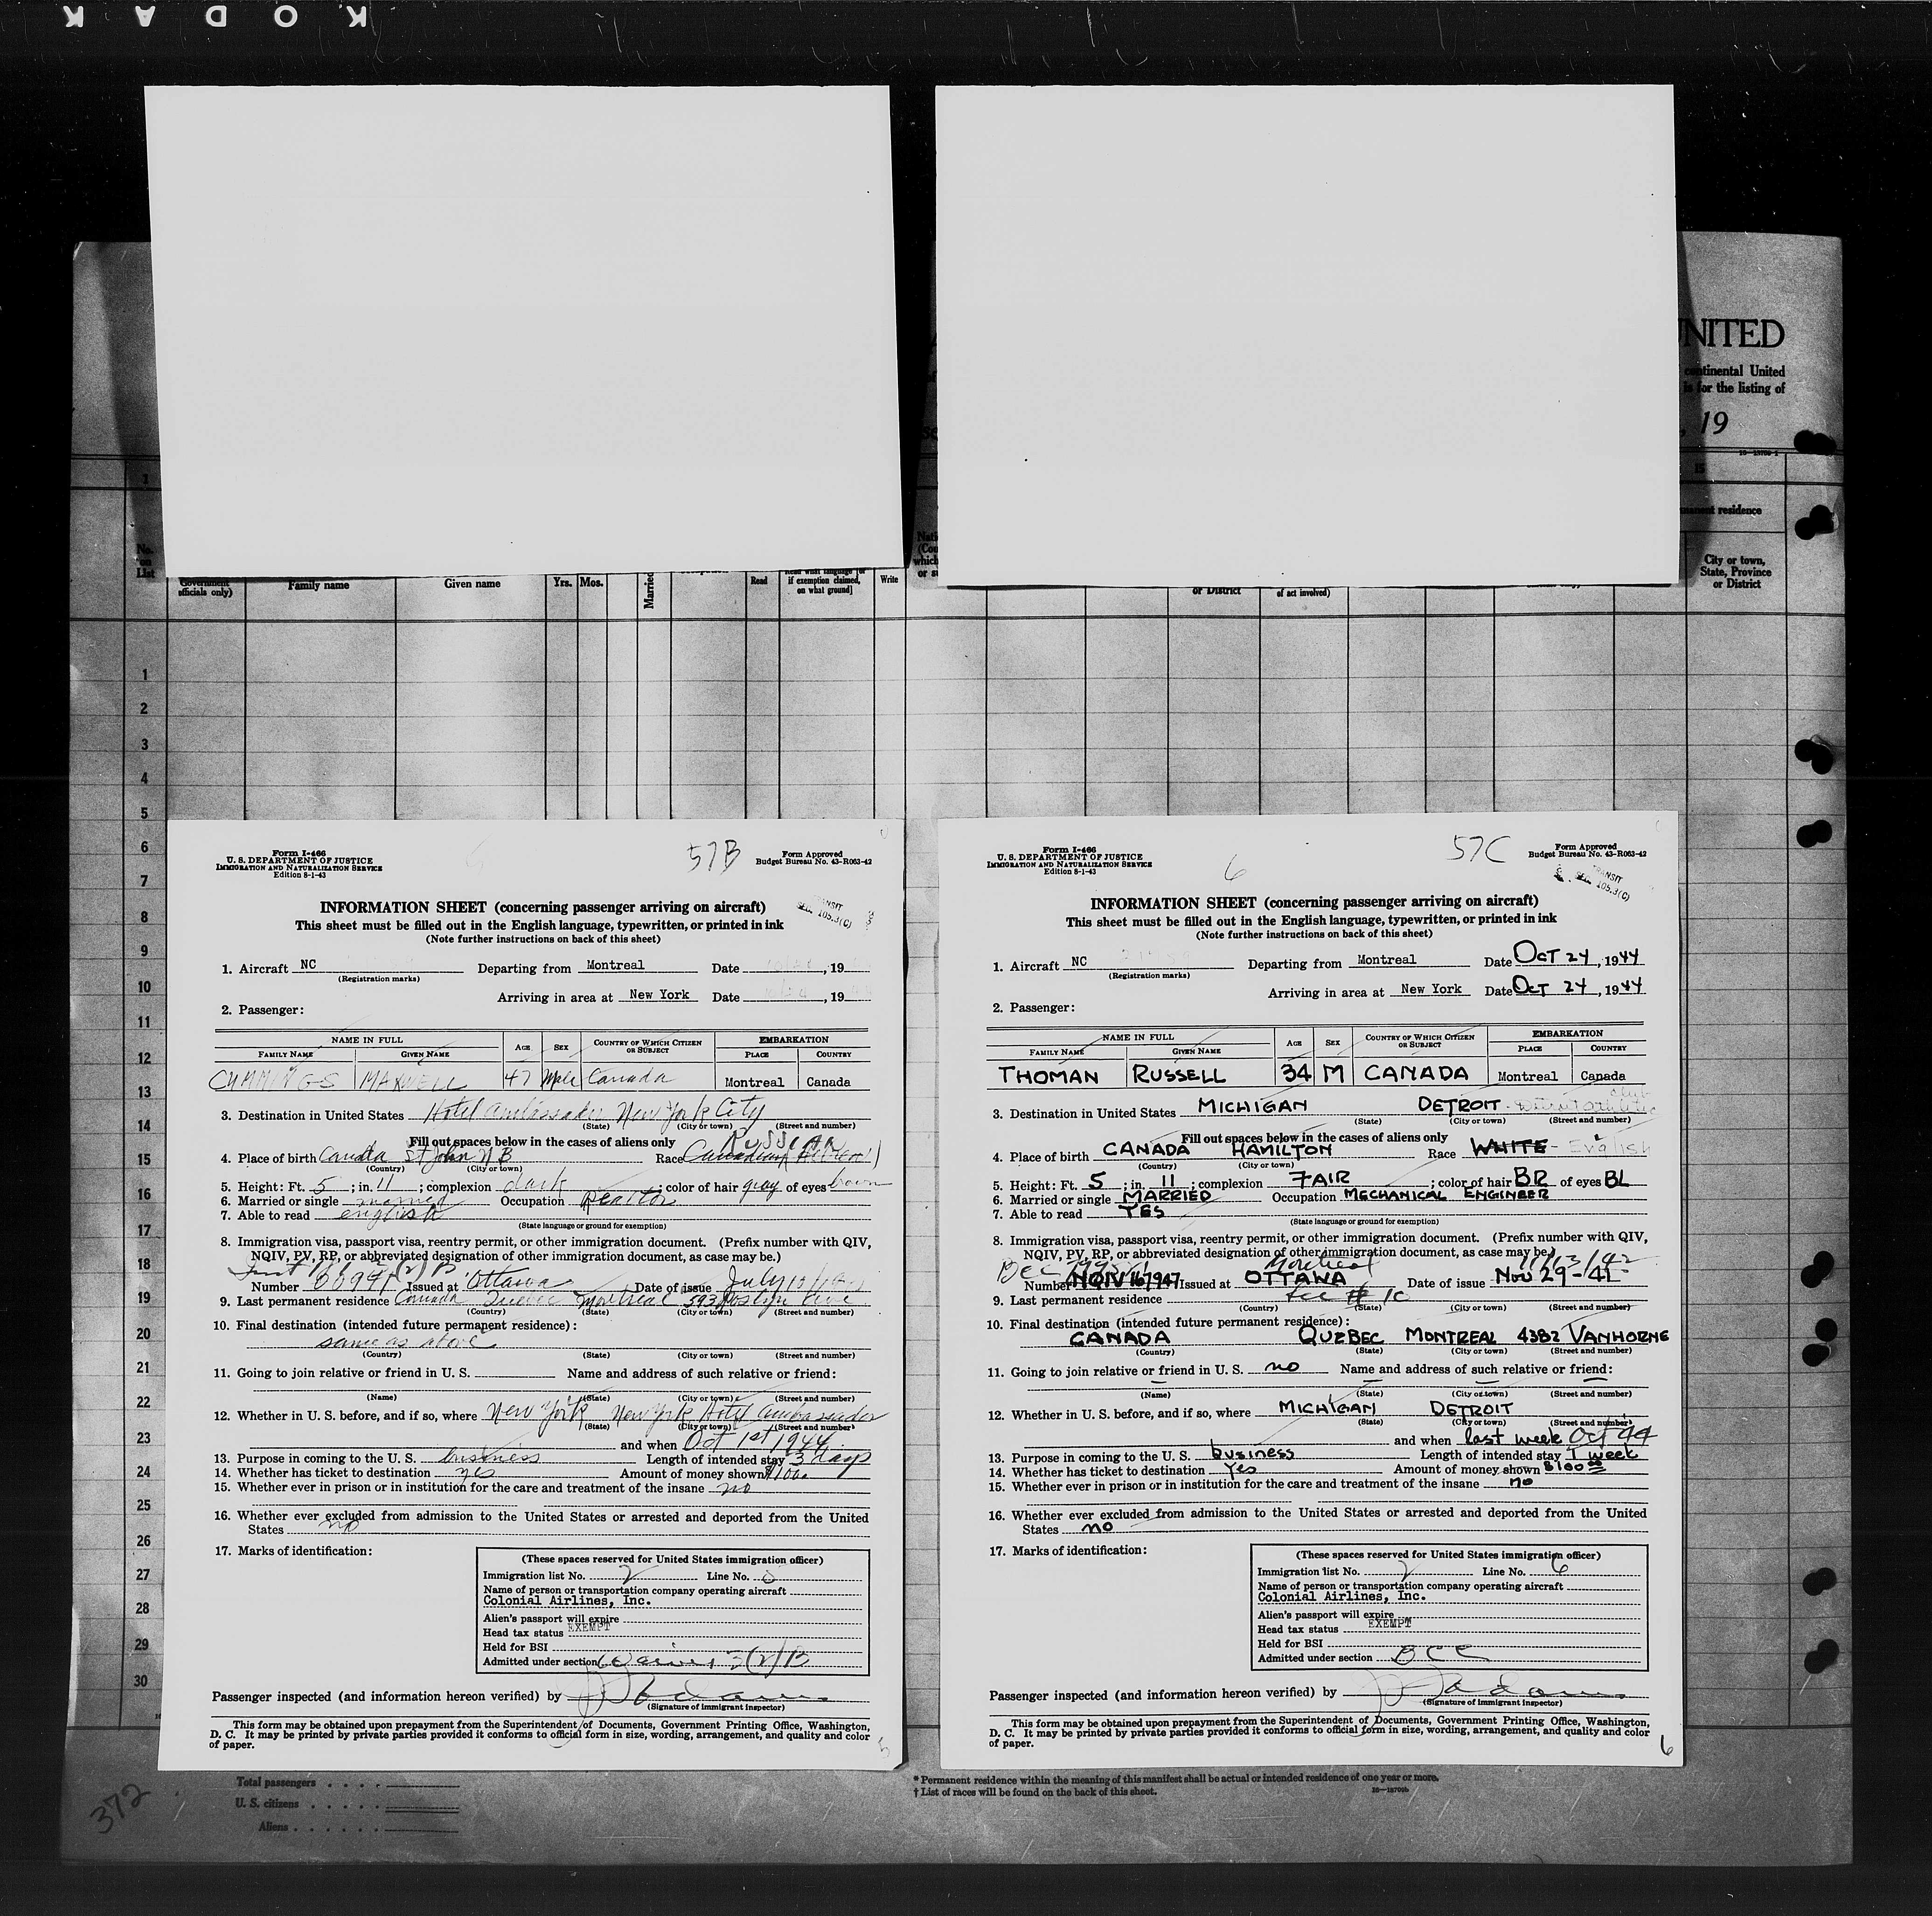 KODAK
UNITED
continental United
is for the listing of
, 19
16—18700-1
1
15
permanent residence
No. on List
Government officials only)
Family name
Given name
Yrs. Mos.
Married
Read
if exemption claimed, on what ground]
Write
or District
of act involved)
City or town, State, Province or District
1
2
3
4
5
6
7
8
9
10
11
12
13
14
15
16
17
18
19
20
21
22
23
24
25
26
27
28
29
30
Form I-466
U. S. DEPARTMENT OF JUSTICE
IMMIGRATION AND NATURALIZATION SERVICE
Edition 8-1-43
57B
Form Approved
Budget Bureau No. 43-R063-42
TRANSIT
SEC. 105.3(C)
INFORMATION SHEET (concerning passenger arriving on aircraft)
This sheet must be filled out in the English language, typewritten, or printed in ink
(Note further instructions on back of this sheet)
1. Aircraft NC Departing from Montreal Date , 19
(Registration marks)
Arriving in area at New York Date , 19
2. Passenger:
NAME IN FULL AGE SEX COUNTRY OF WHICH CITIZEN OR SUBJECT EMBARKATION
FAMILY NAME GIVEN NAME PLACE COUNTRY
CUMMINGS MAXWELL 47 Male Canada Montreal Canada
3. Destination in United States Hotel Ambassador New York City
(State) (City or town) (Street and number)
Fill out spaces below in the cases of aliens only RUSSIAN
4. Place of birth Canada St John N B Race Canadian (Hebrew)
(Country) (City or town)
5. Height: Ft. 5 ; in. 11 ; complexion dark ; color of hair gray of eyes brown
6. Married or single married Occupation Realtor
7. Able to read english
(State language or ground for exemption)
8. Immigration visa, passport visa, reentry permit, or other immigration document. (Prefix number with QIV,
NQIV, PV, RP, or abbreviated designation of other immigration document, as case may be.)
Number Issued at Ottawa Date of issue July
9. Last permanent residence Canada Quebec Montreal 593 Roslyn Ave
(Country) (State) (City or town) (Street and number)
10. Final destination (intended future permanent residence):
same as above
(Country) (State) (City or town) (Street and number)
11. Going to join relative or friend in U. S. Name and address of such relative or friend:
(Name) (State) (City or town) (Street and number)
12. Whether in U. S. before, and if so, where New York New York Hotel Ambassador
(State) (City or town) (Street and number)
and when Oct 1st 1944
13. Purpose in coming to the U. S. business Length of intended stay 3 days
14. Whether has ticket to destination yes Amount of money shown
15. Whether ever in prison or in institution for the care and treatment of the insane no
16. Whether ever excluded from admission to the United States or arrested and deported from the United
States no
17. Marks of identification:
(These spaces reserved for United States immigration officer)
Immigration list No. 2 Line No. 5
Name of person or transportation company operating aircraft
Colonial Airlines, Inc.
Alien's passport will expire
Head tax status EXEMPT
Held for BSI
Admitted under section
Passenger inspected (and information hereon verified) by
(Signature of immigrant inspector)
This form may be obtained upon prepayment from the Superintendent of Documents, Government Printing Office, Washington,
D. C. It may be printed by private parties provided it conforms to official form in size, wording, arrangement, and quality and color
of paper.
5
Form I-466
U. S. DEPARTMENT OF JUSTICE
IMMIGRATION AND NATURALIZATION SERVICE
Edition 8-1-43
6
57C
Form Approved
Budget Bureau No. 43-R063-42
TRANSIT
SEC. 105.3(C)
INFORMATION SHEET (concerning passenger arriving on aircraft)
This sheet must be filled out in the English language, typewritten, or printed in ink
(Note further instructions on back of this sheet)
1. Aircraft NC Departing from Montreal Date OCT 24, 1944
(Registration marks)
Arriving in area at New York Date OCT 24, 1944
2. Passenger:
NAME IN FULL AGE SEX COUNTRY OF WHICH CITIZEN OR SUBJECT EMBARKATION
FAMILY NAME GIVEN NAME PLACE COUNTRY
THOMAN RUSSELL 34 M CANADA Montreal Canada
3. Destination in United States MICHIGAN DETROIT
(State) (City or town) (Street and number)
Fill out spaces below in the cases of aliens only
4. Place of birth CANADA HAMILTON Race WHITE - English
(Country) (City or town)
5. Height: Ft. 5 ; in. 11 ; complexion FAIR ; color of hair BR of eyes BL
6. Married or single MARRIED Occupation MECHANICAL ENGINEER
7. Able to read YES
(State language or ground for exemption)
8. Immigration visa, passport visa, reentry permit, or other immigration document. (Prefix number with QIV,
NQIV, PV, RP, or abbreviated designation of other immigration document, as case may be.)
Montreal 11/13/42
Number NQIV 167947 Issued at OTTAWA Date of issue NOV 29-41
9. Last permanent residence See # 10
(Country) (State) (City or town) (Street and number)
10. Final destination (intended future permanent residence):
CANADA QUEBEC MONTREAL 4382 VANHORNE
(Country) (State) (City or town) (Street and number)
11. Going to join relative or friend in U. S. no Name and address of such relative or friend:
(Name) (State) (City or town) (Street and number)
12. Whether in U. S. before, and if so, where MICHIGAN DETROIT
(State) (City or town) (Street and number)
and when last week Oct 44
13. Purpose in coming to the U. S. business Length of intended stay 1 week
14. Whether has ticket to destination Yes Amount of money shown $100 00
15. Whether ever in prison or in institution for the care and treatment of the insane no
16. Whether ever excluded from admission to the United States or arrested and deported from the United
States no
17. Marks of identification:
(These spaces reserved for United States immigration officer)
Immigration list No. 2 Line No. 6
Name of person or transportation company operating aircraft
Colonial Airlines, Inc.
Alien's passport will expire
Head tax status EXEMPT
Held for BSI
Admitted under section BCC
Passenger inspected (and information hereon verified) by
(Signature of immigrant inspector)
This form may be obtained upon prepayment from the Superintendent of Documents, Government Printing Office, Washington,
D. C. It may be printed by private parties provided it conforms to official form in size, wording, arrangement, and quality and color
of paper.
6
372
Total passengers . . . .
U. S. citizens . . . . .
Aliens . . . . . .
* Permanent residence within the meaning of this manifest shall be actual or intended residence of one year or more.
† List of races will be found on the back of this sheet.